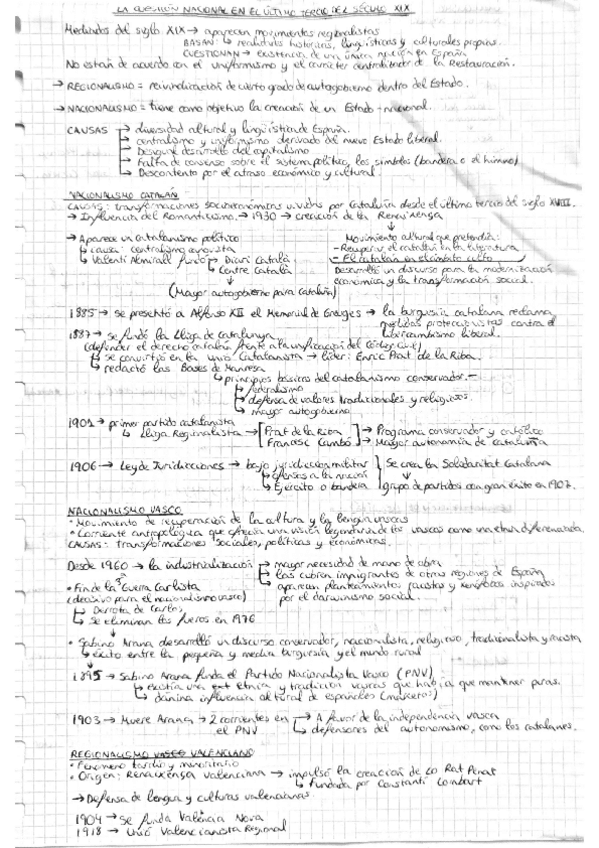 LA CUESTIÓN NACIONAL EN EL ÚLTIMO TERCIO DEL SIGLO XIX
Mediados del siglo XIX → aparecen movimientos regionalistas
BASAN: ↳ realidades históricas, lingüísticas y culturales propias.
CUESTIONAN → existencia de una única nación en España
No están de acuerdo con el uniformismo y el carácter centralizador de la Restauración.
→ REGIONALISMO = reivindicación de cierto grado de autogobierno dentro del Estado.
→ NACIONALISMO = tiene como objetivo la creación de un Estado-nacional.
CAUSAS → diversidad cultural y lingüística de España.
→ centralismo y uniformismo derivado del nuevo Estado liberal.
→ Desigual desarrollo del capitalismo
→ Falta de consenso sobre el sistema político, los símbolos (bandera o el himno)
→ Descontento por el atraso económico y cultural.
NACIONALISMO CATALÁN
CAUSAS: transformaciones socioeconómicas vividas por Cataluña desde el último tercio del siglo XVIII.
→ Influencia del Romanticismo. → 1930 → creación de la Renaixença
→ Aparece un catalanismo político
↳ causa: centralismo canovista
↳ Valentí Almirall fundó → Diari Català
↳ Centre Català
(Mayor autogobierno para Cataluña)
Movimiento cultural que pretendía:
- Recuperar el catalán en la literatura
- El catalán en el ámbito culto
Desarrolló un discurso para la modernización
económica y la transformación social.
1885 → se presentó a Alfonso XII el Memorial de Greuges → la burguesía catalana reclama
medidas proteccionistas contra el
librecambismo liberal.
1887 → se fundó la Lliga de Catalunya
(defender el derecho catalán frente a la unificación del código civil)
↳ se convirtió en la Unió Catalanista → líder: Enric Prat de la Riba.
↳ redactó las Bases de Manresa
↳ principios básicos del catalanismo conservador. -
↳ federalismo
↳ defensa de valores tradicionales y religiosos.
↳ mayor autogobierno
1901 → primer partido catalanista
↳ Lliga Regionalista → [Prat de la Riba] → Programa conservador y católico
[Francesc Cambó] → Mayor autonomía de Cataluña
1906 → Ley de Jurisdicciones → bajo jurisdicción militar } Se crea la Solidaritat Catalana
↳ ofensas a la nación
↳ Ejército o bandera
grupo de partidos con gran éxito en 1907.
NACIONALISMO VASCO
• Movimiento de recuperación de la cultura y la lengua vascas
• Corriente antropológica que ofrecía una visión legendaria de los vascos como una etnia diferenciada.
CAUSAS: transformaciones sociales, políticas y económicas.
Desde 1960 → la industrialización → mayor necesidad de mano de obra
↳ las cubren inmigrantes de otras regiones de España
↳ aparecen planteamientos racistas y xenófobos inspirados
por el darwinismo social.
• Fin de la 3ª Guerra Carlista
(decisivo para el nacionalismo vasco)
↳ Derrota de Carlos
↳ se eliminan los fueros en 1976
• Sabino Arana desarrolló un discurso conservador, nacionalista, religioso, tradicionalista y racista
↳ éxito entre la pequeña y media burguesía y el mundo rural
1895 → Sabino Arana funda el Partido Nacionalista Vasco (PNV)
↳ existía una etnia y tradición vascas que había que mantener puras.
↳ dañina influencia cultural de españoles (maketos)
1903 → Muere Arana → 2 corrientes en → A favor de la independencia vasca
el PNV ↳ defensores del autonomismo, como los catalanes.
REGIONALISMO VASCO VALENCIANO
• Fenómeno tardío y minoritario
• Origen: Renaixença valenciana → impulsó la creación de Lo Rat Penat
↳ Fundada por Constantí Llombart
→ Defensa de lengua y culturas valencianas
1904 → Se funda València Nova
1918 → Unió Valencianista Regional